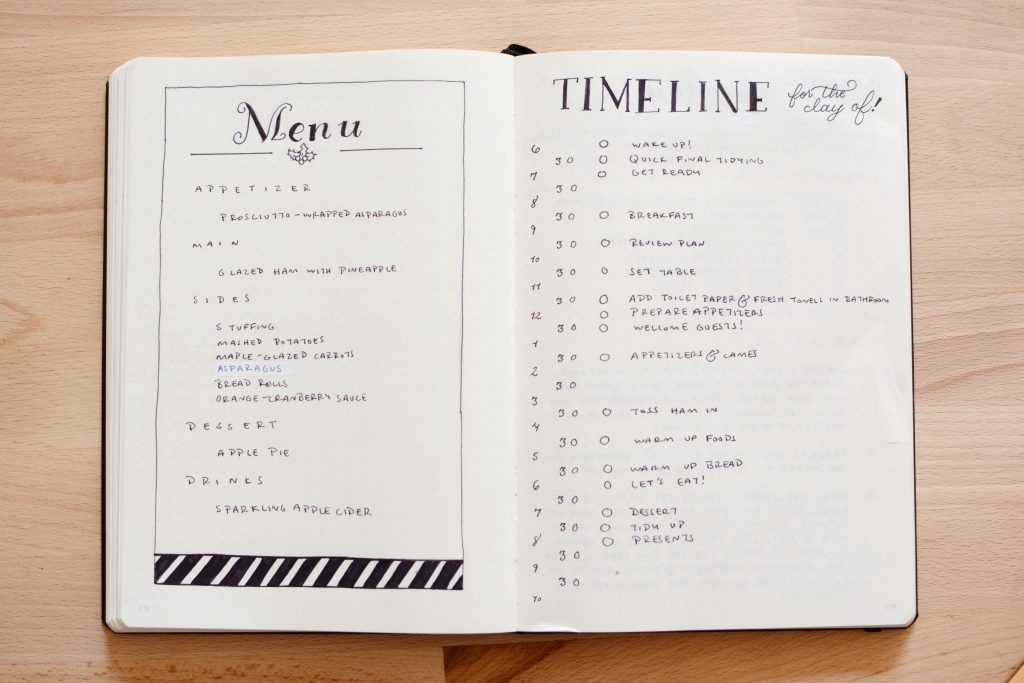 Menu
APPETIZER
PROSCIUTTO-WRAPPED ASPARAGUS
MAIN
GLAZED HAM WITH PINEAPPLE
SIDES
STUFFING
MASHED POTATOES
MAPLE-GLAZED CARROTS
ASPARAGUS
BREAD ROLLS
ORANGE-CRANBERRY SAUCE
DESSERT
APPLE PIE
DRINKS
SPARKLING APPLE CIDER
178
TIMELINE for the day of!
6 WAKE UP!
30 QUICK FINAL TIDYING
7 GET READY
30
8
30 BREAKFAST
9
30 REVIEW PLAN
10
30 SET TABLE
11
30 ADD TOILET PAPER & FRESH TOWELS IN BATHROOM
12 PREPARE APPETIZERS
30 WELCOME GUESTS!
1
30 APPETIZERS & GAMES
2
30
3
30 TOSS HAM IN
4
30 WARM UP FOODS
5
30 WARM UP BREAD
6 LET'S EAT!
30
7 DESSERT
30 TIDY UP
8 PRESENTS
30
9
30
10
179